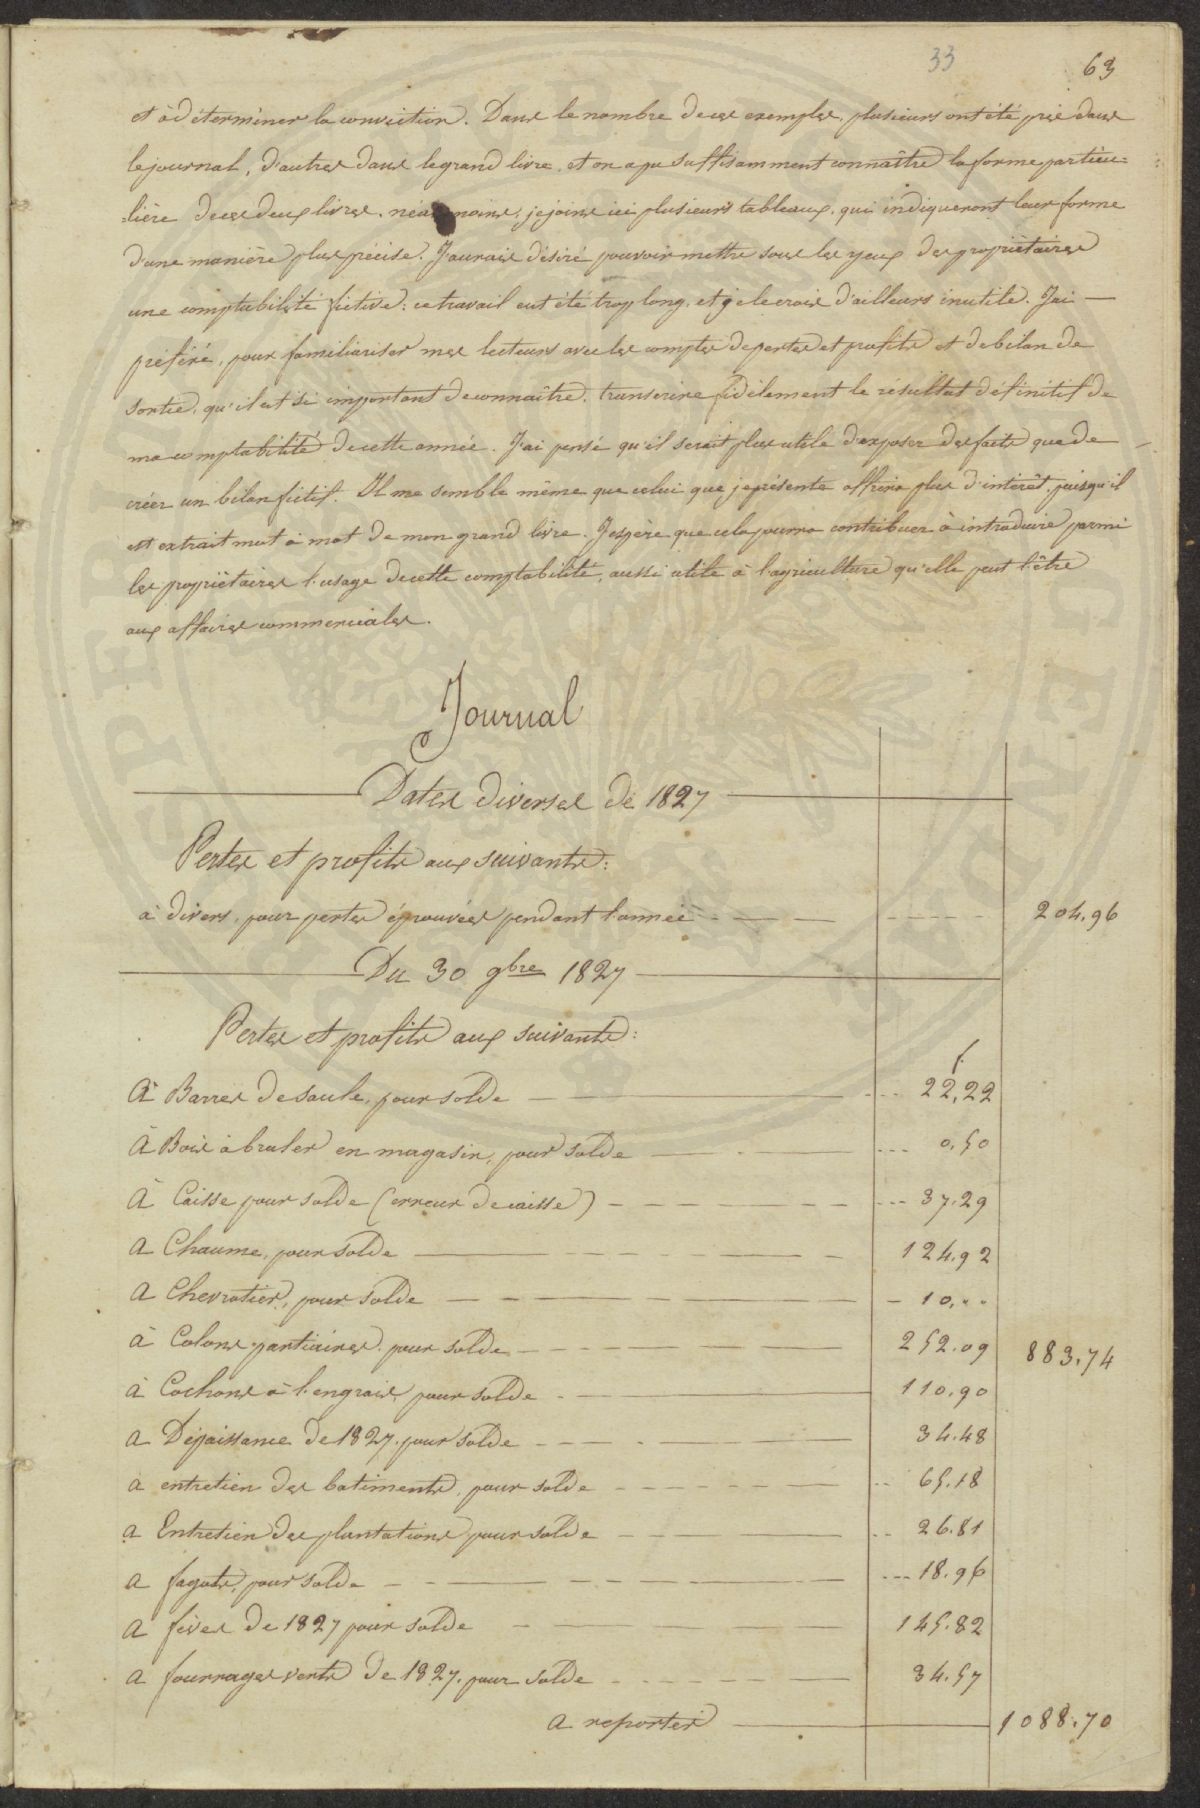 33
63
et à déterminer la conviction. Dans le nombre de ces exemples, plusieurs ont été pris dans
le journal, d'autres dans le grand livre, et on a pu suffisamment connaître la forme particu=
=lière de ces deux livres. néanmoins, je joins ici plusieurs tableaux, qui indiqueront leur forme
d'une manière plus précise. J'aurais désiré pouvoir mettre sous les yeux des propriétaires
une comptabilité fictive: ce travail eut été trop long, et je le crois d'ailleurs inutile. J'ai —
préféré, pour familiariser mes lecteurs avec les comptes de pertes et profits et de bilan de
sortie, qu'il est si important de connaître, transcrire fidèlement le résultat définitif de
ma comptabilité de cette année. J'ai pensé qu'il serait plus utile d'exposer des faits que de
créer un bilan fictif. Il me semble même que celui que je présente offrira plus d'intérêt, puisqu'il
est extrait mot à mot de mon grand livre. J'espère que cela pourra contribuer à introduire parmi
les propriétaires l'usage de cette comptabilité, aussi utile à l'agriculture qu'elle peut l'être
aux affaires commerciales.
Journal
Dates diverses de 1827
Pertes et profits aux suivants:
à divers, pour pertes éprouvées pendant l'année 204.96
Du 30 9bre 1827
Pertes et profits aux suivants:
f.
À Barres de saule, pour solde 22,22
À Bois à bruler en magasin, pour solde 0,50
À Caisse pour solde (erreur de caisse) 37.29
A Chaume, pour solde 124.92
A Chevratier, pour solde 10,..
à Colons partiaires, pour solde 252.09 883.74
à Cochons à l'engrais, pour solde 110.90
a Dépaissance de 1827, pour solde 34.48
a entretien des batiments, pour solde 65.18
a Entretien des plantations pour solde 26.81
a fagots, pour solde 18.96
a fèves de 1827 pour solde 145.82
a fourrages verts de 1827, pour solde 34.57
a reporter 1088.70